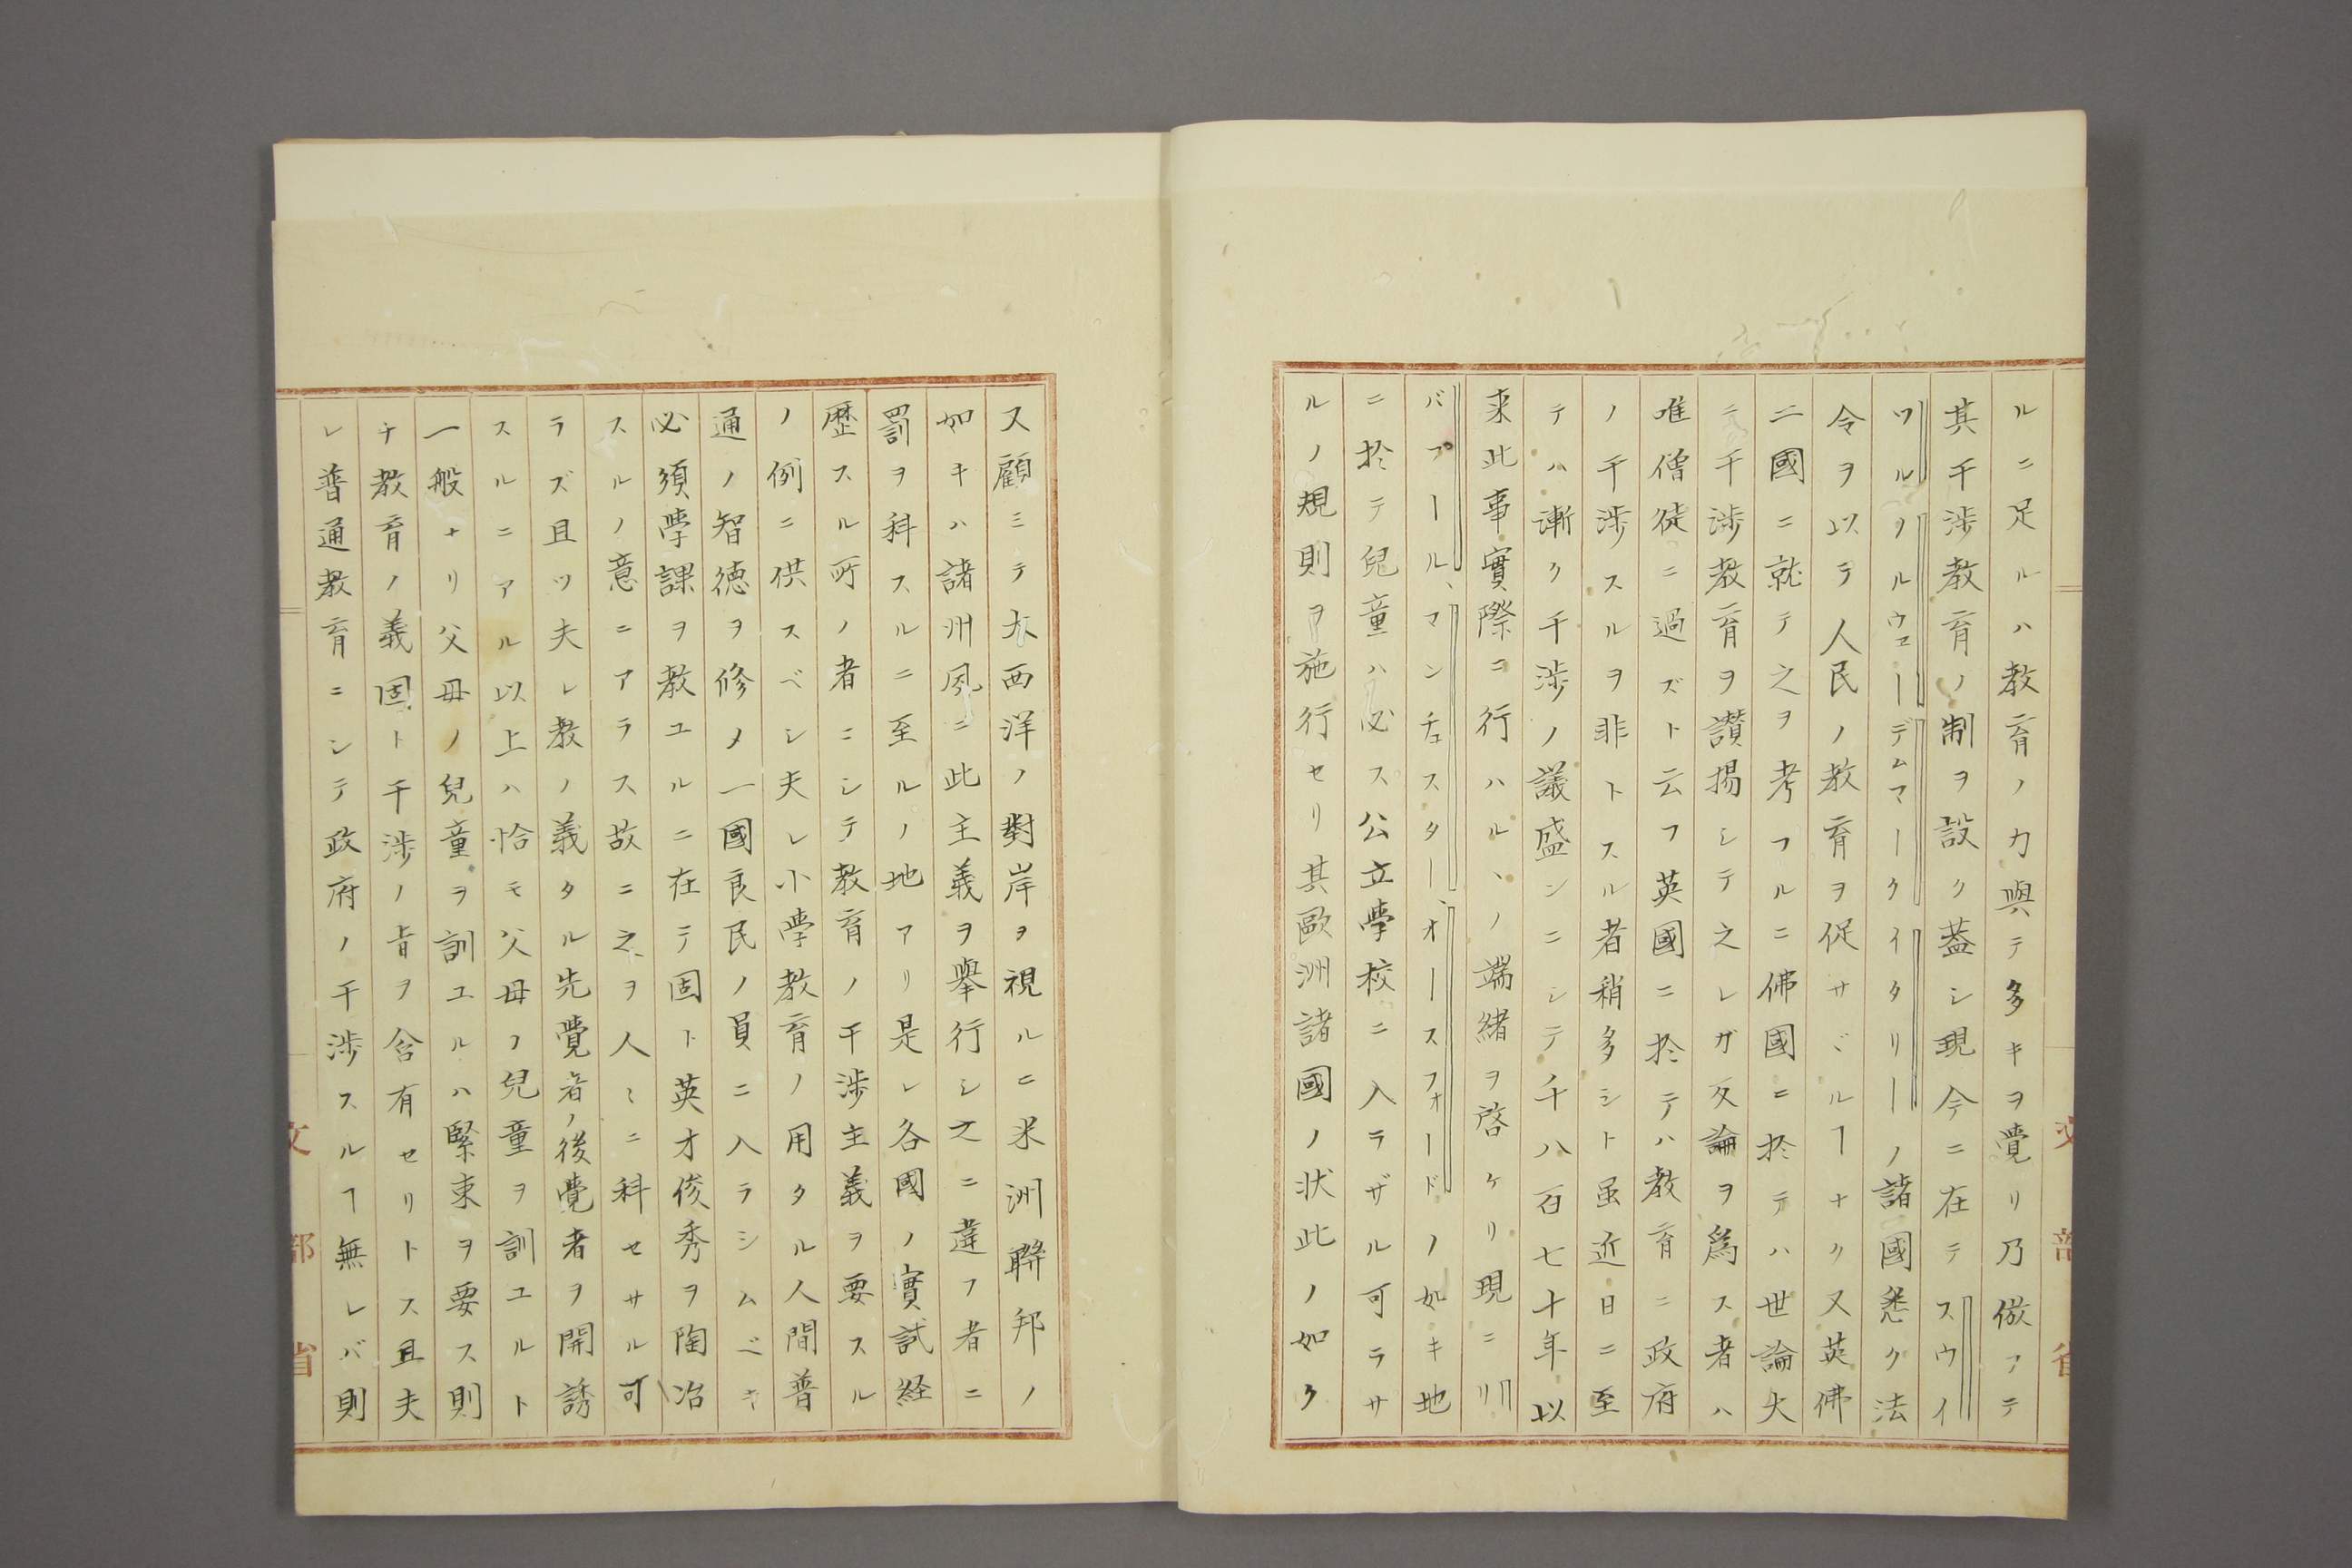 ルニ足ルハ教育ノ力與テ多キヲ覺リ乃倣ァテ
其干渉教育ノ制ヲ設ク蓋シ現今ニ在テスウイ
ツルヲルウェーデムマークイタリーノ諸國悉ク法
令ヲ以テ人民ノ教育ヲ促サヾルヿナク又英佛
二國ニ就テ之ヲ考フルニ佛國ニ於テハ世論大
ニ干渉教育ヲ讃揚シテ之レガ反論ヲ爲ス者ハ
唯僧徒ニ過ズト云フ英國ニ於テハ教育ニ政府
ノ干渉スルヲ非トスル者稍多シト虽近日ニ至
テハ漸ク干渉ノ議盛ンニシテ千八百七十年以
来此事實際ニ行ハルヽノ端緒ヲ啓ケリ現ニリ
バプール、マンチェスター、オースフォードノ如キ地
ニ於テ兒童ハ必ス公立學校ニ入ラザル可ラサ
ルノ規則ヲ施行セリ其歐洲諸國ノ状此ノ如ク
文部省
又顧ミテ大西洋ノ對岸ヲ視ルニ米洲聯邦ノ
如キハ諸州夙ニ此主義ヲ擧行シ之ニ違フ者ニ
罰ヲ科スルニ至ルノ地アリ是レ各國ノ實試経
歴スル所ノ者ニシテ教育ノ干渉主義ヲ要スル
ノ例ニ供スベシ夫レ小學教育ノ用タル人間普
通ノ智徳ヲ修メ一國良民ノ員ニ入ラシムベキ
必須學課ヲ教ユルニ在テ固ト英才俊秀ヲ陶冶
スルノ意ニアラス故ニ之ヲ人ミニ科セサル可
ラズ且ツ夫レ教ノ義タル先覺者ノ後覺者ヲ開誘
スルニアル以上ハ恰モ父母ノ兒童ヲ訓ユルト
一般ナリ父母ノ兒童ヲ訓ユルハ緊束ヲ要ス則
チ教育ノ義固ト干渉ノ旨ヲ含有セリトス且夫
レ普通教育ニシテ政府ノ干渉スルヿ無レバ則
文部省